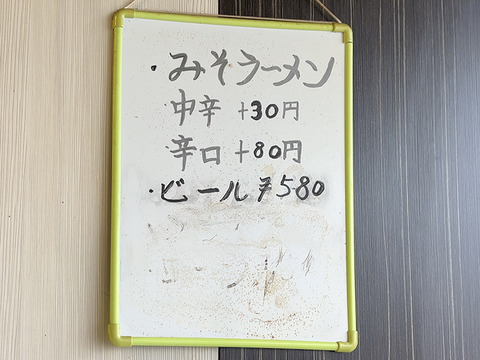 ・みそラーメン
中辛 +30円
辛口 +80円
・ビール ¥580